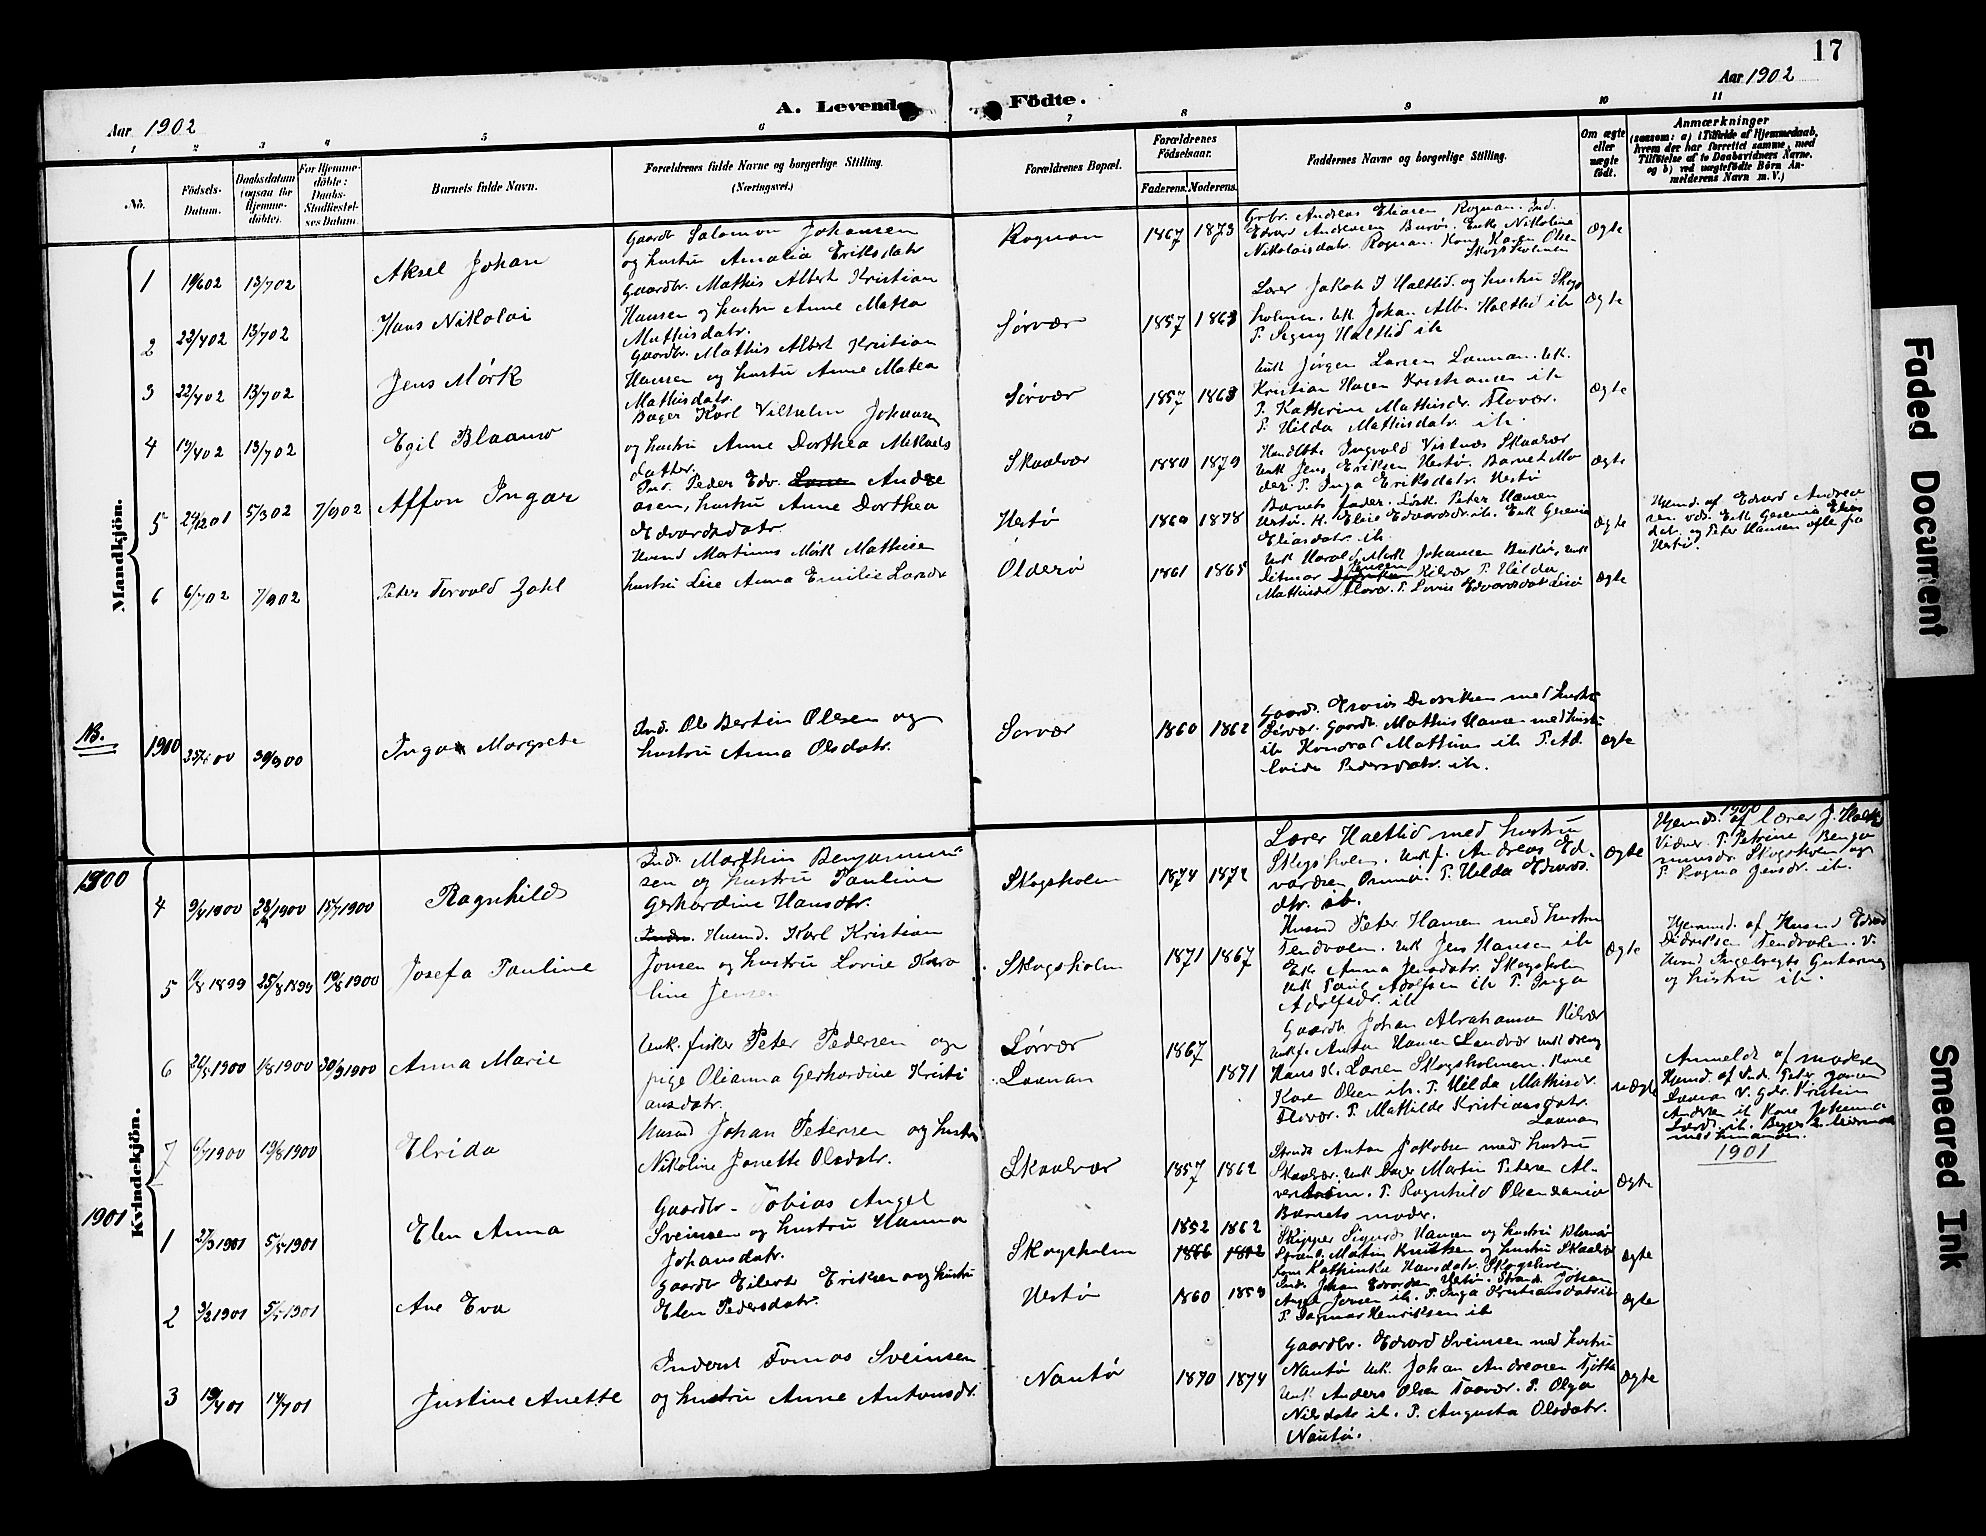 17
Aar 1902
Aar 1902
A. Levende Födte.
1 2 3 4 5 6 7 8 9 10 11
No.
Födsels-Datum.
Daabsdatum (ogsaa for Hjemmedöbte).
For Hjemmedöbte: Daabs-Stadfæstelses Datum.
Barnets fulde Navn.
Forældrenes fulde Navne og borgerlige Stilling. (Næringsvei.)
Forældrenes Bopæl.
Forældrenes Födselsaar.
Faderens. Moderens.
Faddernes Navne og borgerlige Stilling.
Om ægte eller uægte födt.
Anmærkninger
(saasom: a) i Tilfælde af Hjemmedaab,
hvem der har forrettet samme, med
Tilföielse af to Daabsvidners Navne,
og b) ved uægtefödte Börn An-
melderens Navn m. V.)
Mandkjön.
1 19/6 02 13/7 02 Aksel Johan
Gaardb Salomon Johansen
og hustru Amalia Eriksdatr
Rognan 1867 1873
Grbr. Andreas Eliasen Rognan. Ind.
Edvard Andreasen Burø. Enke Nikoline
Nikolaisdatr. Rognan. Kone Karen Olsen
Skogsholmen
ægte
2 22/4 02 13/7 02 Hans Nikolai
Gaardbr. Mathis Albert Kristian
Hansen og hustru Anne Matea
Mathisdatr.
Sørvær 1857 1863
Lærer Jakob J Haltlid og hustru Skogs
holmen. Uk Johan Alb. Haltlid ib
P. Signy Haltlid ib
ægte
3 22/4 02 13/7 02 Jens Mørk
Gaardbr. Mathis Albert Kristian
Hansen og hustru Anne Matea
Mathisdatr.
Sørvær 1857 1863
Jørgen Larsen Laanan. Uk.
Kristian Hagen Kristiansen ib
P. Katherine Mathisdr. Flovær.
P. Hilda Mathisdatr. ib.
ægte
4 19/4 02 13/7 02 Egil Blaamo
Bager Karl Vilhelm Johansen
og hustru Anne Dorthea Mikaels
datter.
Skaalvær 1880 1879
Handlbt Ingvald Vistnæs Skaalvær
Uk Jens Eriksen Hestø. Barnet Mo
der. P. Inga Eriksdatr. Hestø
ægte
5 24/12 01 5/3 02 7/9 02 Affon Ingar
Ind. Peder Edv. Andre
asen, hustru Anne Dorthea
Edvardsdatr.
Hestø 1860 1878
Barnets fader. Peter Hansen
Hestø. H. Elise Edvardsdr. ib. Enk Gesenia
Eliasdatr. ib.
ægte
Hjemd. af Edvard Andrea
sen ved. Enk Gesenia Elias
datr. og Peter Hansen
Hestø.
6 6/7 02 7/9 02 Peter Torvald Zahl
Husmd Martinus Mørk Mathisen
hustru Lise Anna Emilie Larsdr
Olderø 1861 1865
Uk Harald Mørk Johansen Buko, uk
Ditmar Jensen Kilvær P. Hilda
Mathisdr Flovær. P. Lovise Edvardsdatr
ægte
NB.
1900 Inga Margrete
30/9 00
Ind. Ole Bertin Olesen og
hustru Anna Olsdatr.
Sørvær 1860 1862
Gaardb. Didriksen med hustru
Sørvær. Gaardb. Mathis Hansen med hustru
ib Konrad Mathisen ib P. Ad.
Pedersdatr. ib.
ægte
Kvindekjön.
1900
4 9/4 1900 15/7 1900 Ragnhild
Ind. Marthin Benjaminsen
sen og hustru Pauline
Gerhardine Hansdtr.
Skogsholm 1874 1872
Lærer Haltlid med hustru
Skogsholm. Ukf. Andreas Ed-
vardsen P. Hilda Edvards
dtr. ib.
ægte
1900
Hjemd. af lærer J. Haltlid
Vidner. P. Petrine Benja
minsdr. Skogsholm og
P. Ragna Jensdr. ib.
5 1/8 1899 25/8 1899 19/8 1900 Josefa Pauline
Husmd. Karl Kristian
Jensen og hustru Lovise Karo
line Jensen
Skogsholm 1871 1867
Husmd Peter Hansen med hustru
Tendvalen. Uk Jens Hansen ib
Enk Anna Jensdatr. Skogsholm
Uk Paul Adolfsen ib P. Inga
Adolfsdr. ib
ægte
Hjemmd. af Husmd Edvard
Didriksen Tendvalen. V.
Husmd Ingebregt Gustavsen
og hustru ib.
6 1/8 1900 30/9 1900 Anna Marie
Unk. fisker Peter Pedersen og
pige Olianna Gerhardine Kristi
ansdatr.
Sørvær 1867
Laanan 1871
Gaardb Johan Abrahamsen Kilvær
Ukf. Anton Hansen Sandvær uk dreng
Hans K. Larsen Skogsholmen. Kone
Karen Olsen ib. P. Hilda Mathisdr.
Flovær. P. Mathilde Kristiansdatr.
Laanan
uægte
Anmeldt af moderen
Hjemd. af Ind. Peter Jansen
Laanan V. Gdr. Kristian
Andr. ib Kone Johanna
Larsd. ib.
7 6/7 1900 19/8 1900 Elrida
Husmd Johan Petersen og hustru
Nikoline Janette Olsdatr.
Skaalvær 1857 1862
Strands Anton Jakobsen med hustru
Skaalvær. Uk Martin Petersen Al-
P. Ragnhild Olsen
Barnets moder.
ægte
1901
1901
1 27/3 1901 5/5 1901 Elen Anna
Gaardbr. Tobias Angel
Svensen og hustru Hanna
Johansdatr.
Skogsholm 1852 1862
1866 1812
Skipper Sigurd Hansen og hustru Blomsø
Strands. Martin Knutsen og hustru Skaalvær
Kone Kathinka Hansdatr. Skogsholm.
ægte
2 3/2 1901 5/5 1901 Ane Eva
Gaardbr Eilert Eriksen og hustru
Elen Pedersdatr.
Hestø 1860 1859
Ind. Johan Edvardsen Hestø. Strands. Johan
Angel Jensen ib. P. Inga Kristiansdatr ib
P. Dagmar Henriksen ib
ægte
3 19/4 01 14/7 01 Justine Anette
Inderst Tomas Svensen
og hustru Anne Antonsdr.
Nautø 1870 1874
Gaardbr. Edvard Svensen med hustru
Nautø Uk. Johan Andreasen Tjøtta
Uk Anders Olsen Taavær. P. Olga
Nilsdatr ib. P. Augusta Olsdatr.
Nautø.
ægte
Faded Document
Smeared Ink